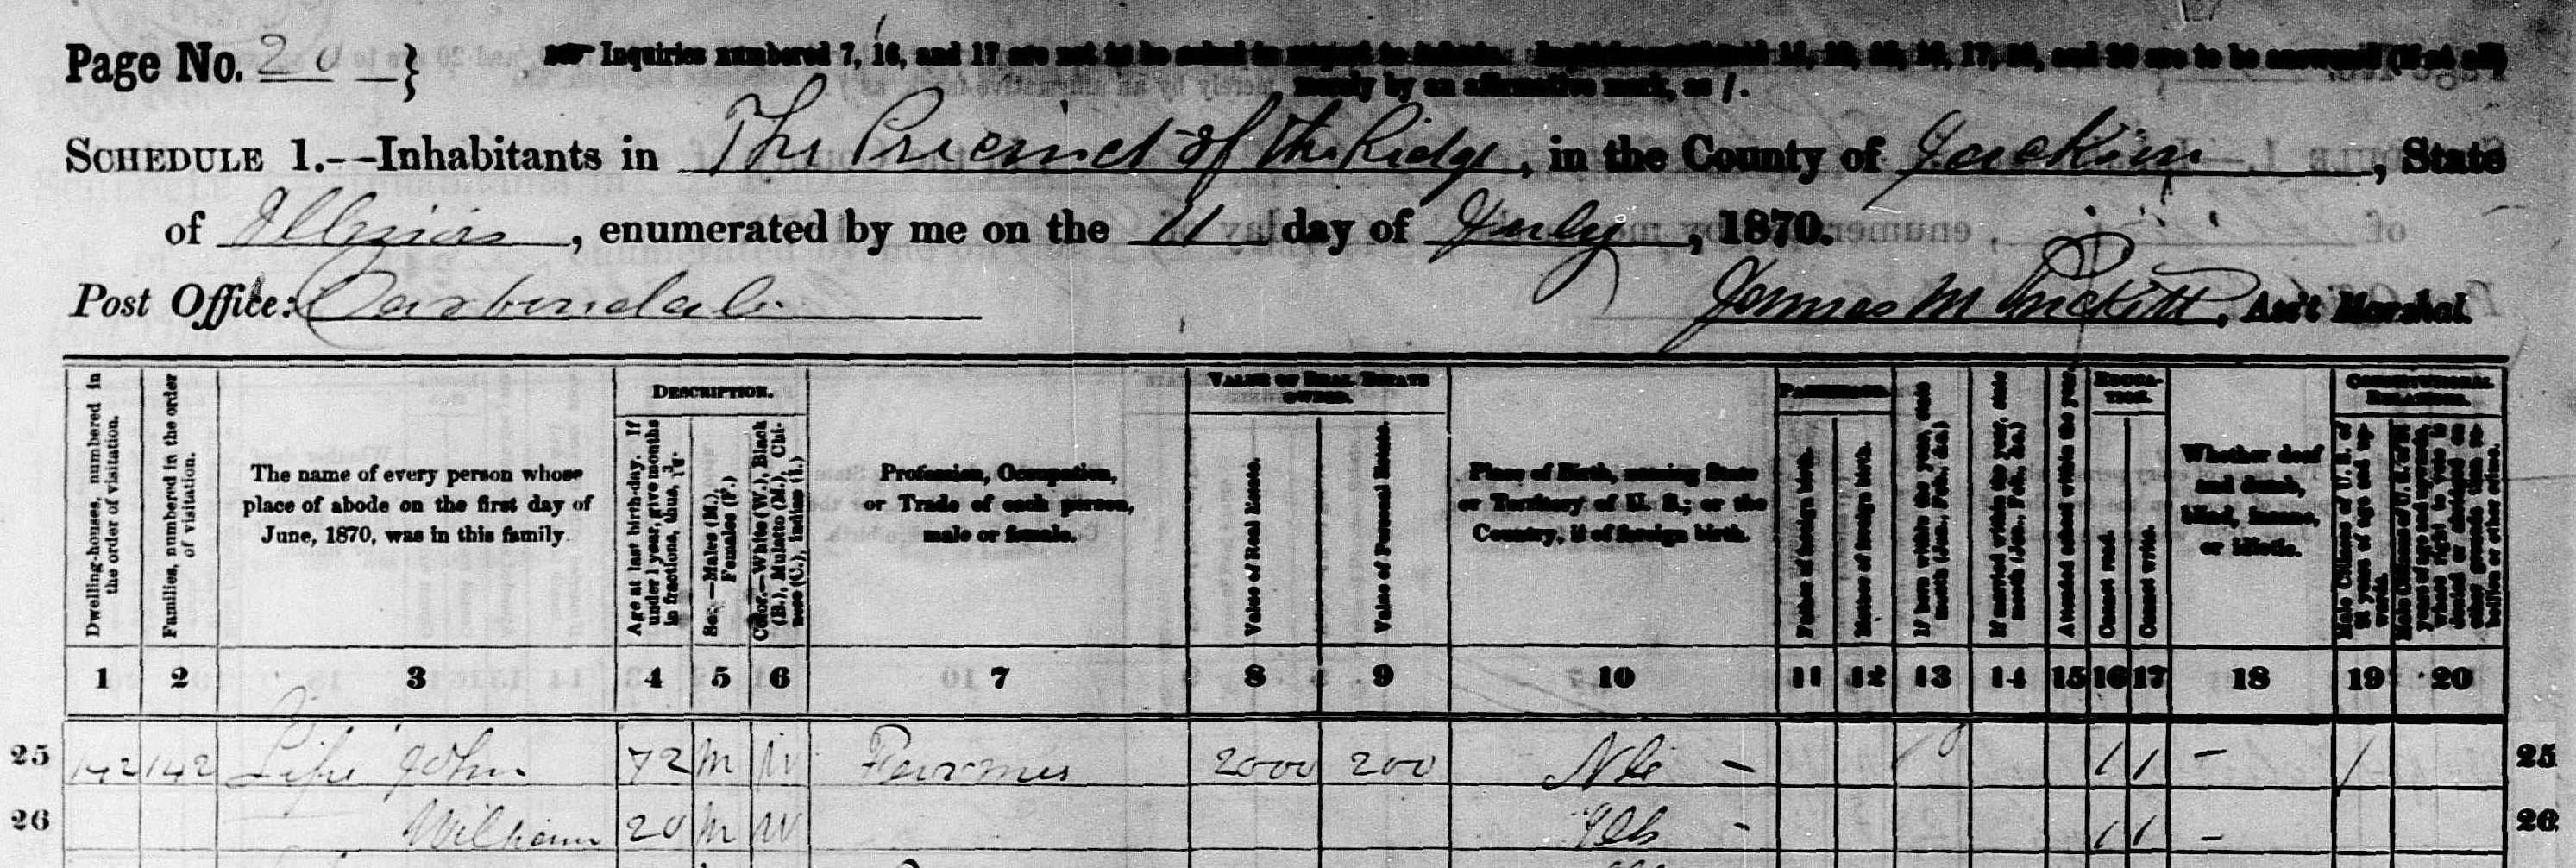 Page No. 20 }
Inquiries numbered 7, 16, and 17 are not to be asked in respect to infants. Inquiries numbered 11, 12, 15, 16, 17, 19, and 20 are to be answered (if at all)
merely by an affirmative mark, as /.
SCHEDULE 1.--Inhabitants in The Precinct of The Ridge, in the County of Jackson, State
of Illinois, enumerated by me on the 11 day of July, 1870.
Post Office: Carbondale James M Pickett, Ass't Marshal.
Dwelling-houses, numbered in the order of visitation.
Families, numbered in the order of visitation.
The name of every person whose place of abode on the first day of June, 1870, was in this family.
DESCRIPTION.
Age at last birth-day. If under 1 year, give months in fractions, thus, 3/12.
Sex.—Males (M.), Females (F.)
Color.—White (W.), Black (B.), Mulatto (M.), Chinese (C.), Indian (I.)
Profession, Occupation, or Trade of each person, male or female.
VALUE OF REAL ESTATE OWNED.
Value of Real Estate.
Value of Personal Estate.
Place of Birth, naming State or Territory of U. S.; or the Country, if of foreign birth.
PARENTAGE.
Father of foreign birth.
Mother of foreign birth.
If born within the year, state month (Jan., Feb., &c.)
If married within the year, state month (Jan., Feb., &c.)
Attended school within the year.
EDUCATION.
Cannot read.
Cannot write.
Whether deaf and dumb, blind, insane, or idiotic.
CONSTITUTIONAL RELATIONS.
Male Citizens of U. S. of 21 years of age and upwards.
Male Citizens of U. S. of 21 years of age and upwards, whose right to vote is denied or abridged on other grounds than rebellion or other crime.
1 2 3 4 5 6 7 8 9 10 11 12 13 14 15 16 17 18 19 20
25 142 142 John 72 M W Farmer 2000 200 - / / - / 25
26 William 20 M W Ills - / / - 26